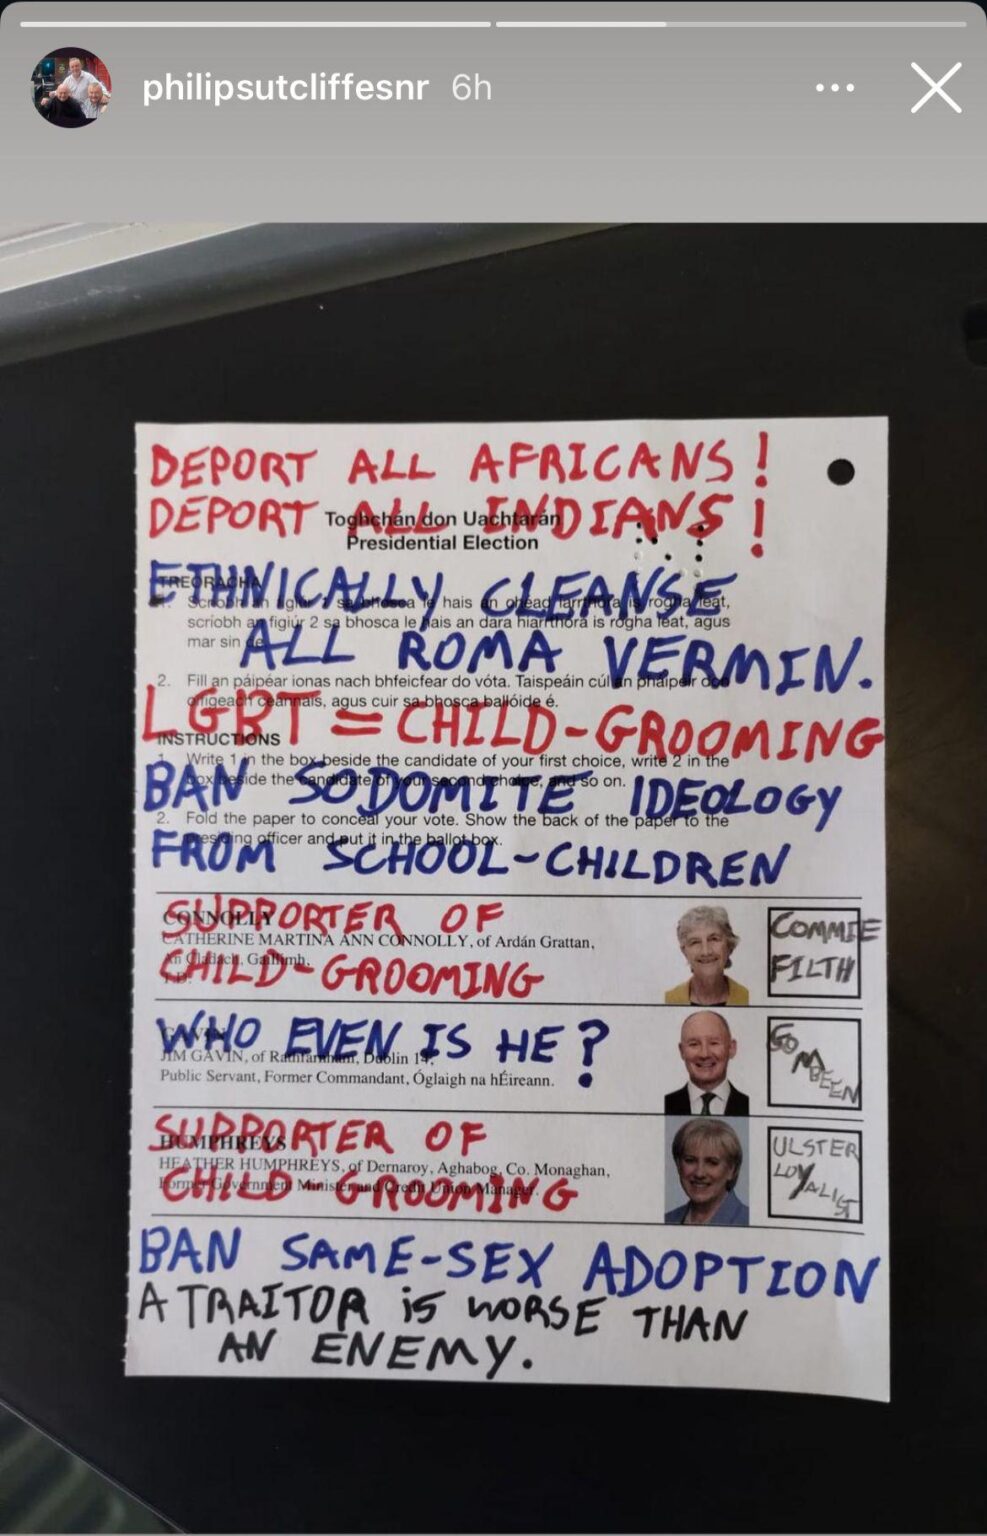 philipsutcliffesnr 6h
DEPORT ALL AFRICANS!
DEPORT ALL INDIANS!
Toghchán don Uachtarán
Presidential Election
ETHNICALLY CLEANSE
TREORACHA
1. Scríobh an figiúr 1 sa bhosca le hais an chéad iarrthóra is rogha leat,
scríobh an figiúr 2 sa bhosca le hais an dara hiarrthóra is rogha leat, agus
mar sin de.
ALL ROMA VERMIN.
2. Fill an páipéar ionas nach bhfeicfear do vóta. Taispeáin cúl an pháipéir don
oifigeach ceannais, agus cuir sa bhosca ballóide é.
LGBT = CHILD-GROOMING
INSTRUCTIONS
1. Write 1 in the box beside the candidate of your first choice, write 2 in the
box beside the candidate of your second choice, and so on.
BAN SODOMITE IDEOLOGY
2. Fold the paper to conceal your vote. Show the back of the paper to the
presiding officer and put it in the ballot box.
FROM SCHOOL-CHILDREN
SUPPORTER OF
CONNOLLY
CATHERINE MARTINA ANN CONNOLLY, of Ardán Grattan,
An Cladach, Gaillimh.
T.D.
CHILD-GROOMING
COMMIE
FILTH
WHO EVEN IS HE?
GAVIN
JIM GAVIN, of Rathfarnham, Dublin 14.
Public Servant, Former Commandant, Óglaigh na hÉireann.
GOMBEEN
SUPPORTER OF
HUMPHREYS
HEATHER HUMPHREYS, of Dernaroy, Aghabog, Co. Monaghan,
Former Government Minister and Credit Union Manager.
CHILD GROOMING
ULSTER
LOYALIST
BAN SAME-SEX ADOPTION
A TRAITOR iS WORSE THAN
AN ENEMY.